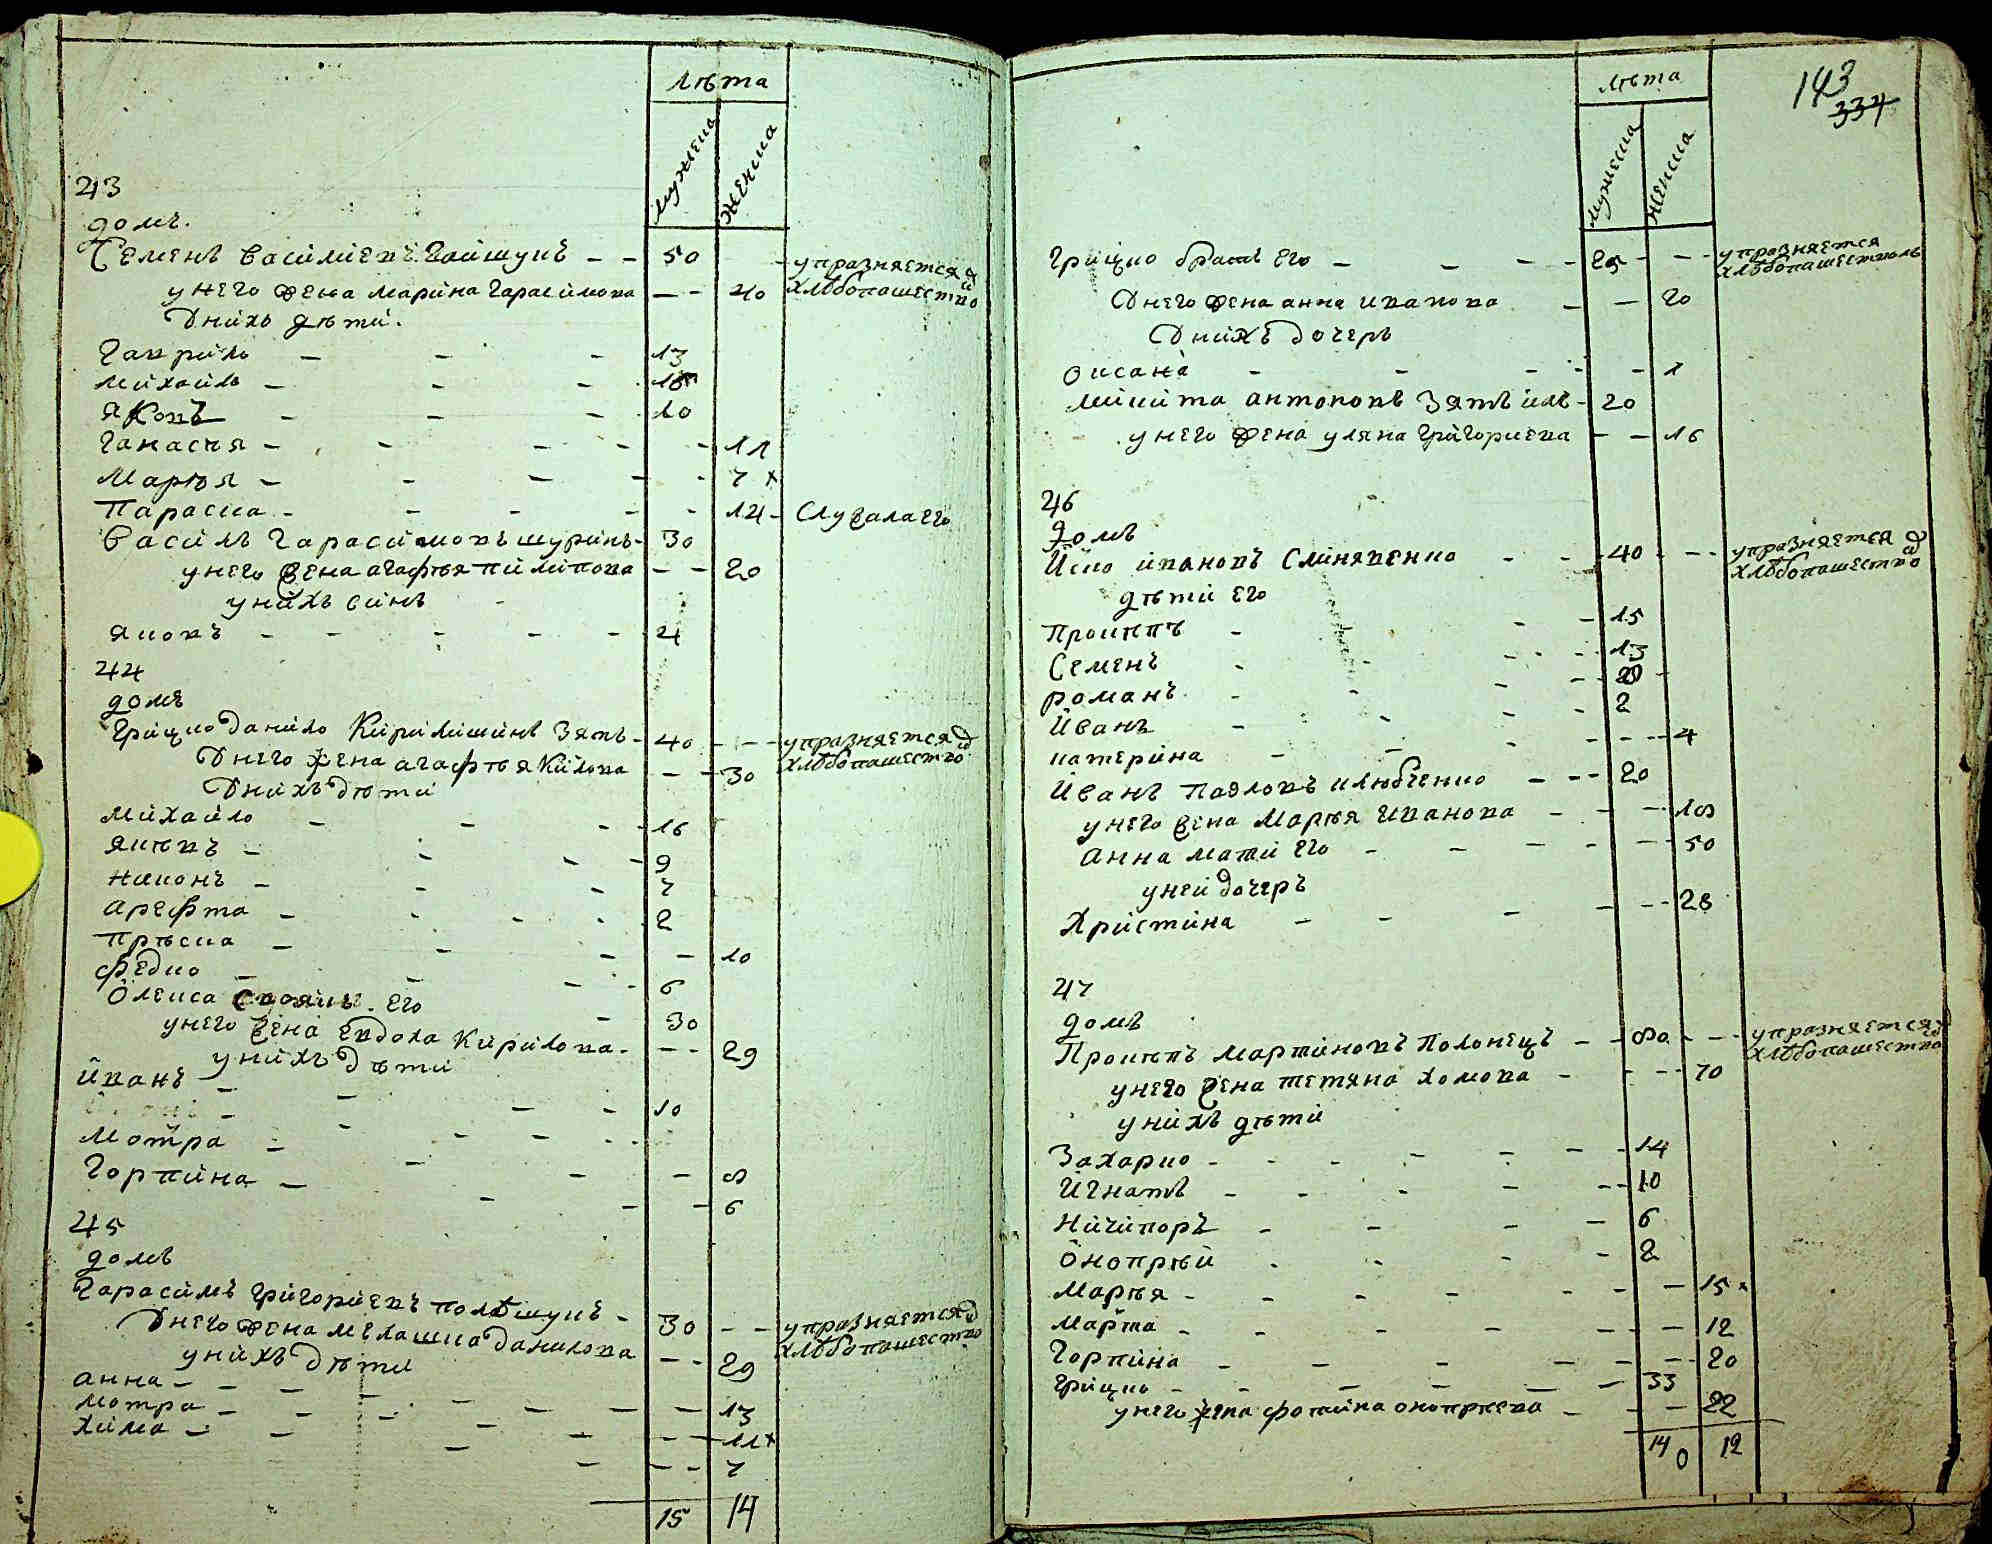 лѣта
мужеска
женска
43
домъ.
Семенъ Василиевъ Гайшунъ – – 50 упразняется
у него жена Марина Гарасимова – – 40 хлѣбопашество
У нихъ дѣти.
Гаврило – – – 13
Михайло – – –
Яковъ – – – 10
Ганасъя – – – – – 11
Маръя – – – – – 7 х
Параска – – – – – 14 –
Василь Гарасимовъ шуринъ – 30
у него жена Агафъя Пилипова – – 20
у нихъ синъ
Яковъ – – – – – 4
44
домъ
Грицко Данило Кирилишинъ зять – 40 – – – упразняется
У него жена Агафъя Килова – – 30 хлѣбопашество
У нихъ дѣти
Михайло – – – 16
Якѣвъ – – – – 9
Никонъ – – – 7
Арефта – – – 2
Прѣска – – – – 10
Федко – – – – 6
Олекса его – 30
у него жена Евдоха Кирилова – – – 29
у нихъ дѣти
Иванъ – – – – 10
Мотра – – – – 8
Горпина – – – – 6
45
домъ
Гарасимъ Григориевъ Полѣшукъ – 30 – – упразняется
У него жена Мелашка Данилова – – 29 хлѣбопашество
у нихъ дѣти
Анна – – – – – 13
Мотра – – – – – 11 х
Хима – – – – – 7
15 14
143
334
лѣта
мужеска
женска
Грицко братъ его – – – – 25 – – – упразняется
хлѣбопашествомъ
У него жена Анна Иванова – – 20
У нихъ дочеръ
Оксана – – – – – 1
Микита Антоновъ зять ихъ – 20
у него жена Уляна Григориева – – 16
46
Домъ
Иско Ивановъ Слинявенко – – 40 – – – упразняется
хлѣбопашество
дѣти его
Прокѣпъ – – – – 15
Семенъ – – – – 13
Романъ – – – –
Иванъ – – – – 2
Катерина – – – – – 4
Иванъ Павловъ – – – 20
у него жена Маръя Иванова – – – 18
Анна мати его – – – – – 50
у ней дочеръ
Христина – – – – – – 28
47
домъ
Прокѣпъ Мартиновъ Полонецъ – – 80 – – – упразняется
хлѣбопашество
у него жена Тетяна Хомова – – – – 70
у нихъ дѣти
Захарко – – – – – – 14
Игнатъ – – – – – – 10
Ничипоръ – – – – 6
Онопрѣй – – – – 2
Маръя – – – – – – 15 х
Марта – – – – – – – 12
Горпина – – – – – – – 20
Грицко – – – – – – 33
у него жена Фотина Онопрѣева – – – 22
14 0 12